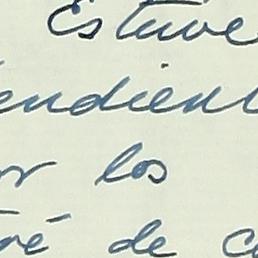 Estuve
endient
or los
ré de c